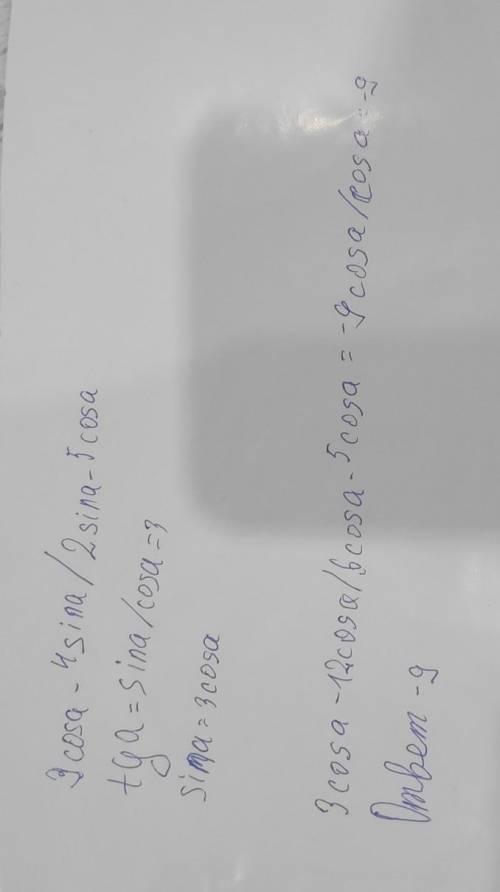 3cosa - 4sina / 2sina - 5cosa
tga = sina/cosa = 3
sina = 3cosa
3cosa - 12cosa / 6cosa - 5cosa = -9cosa/cosa = -9
Ответ -9